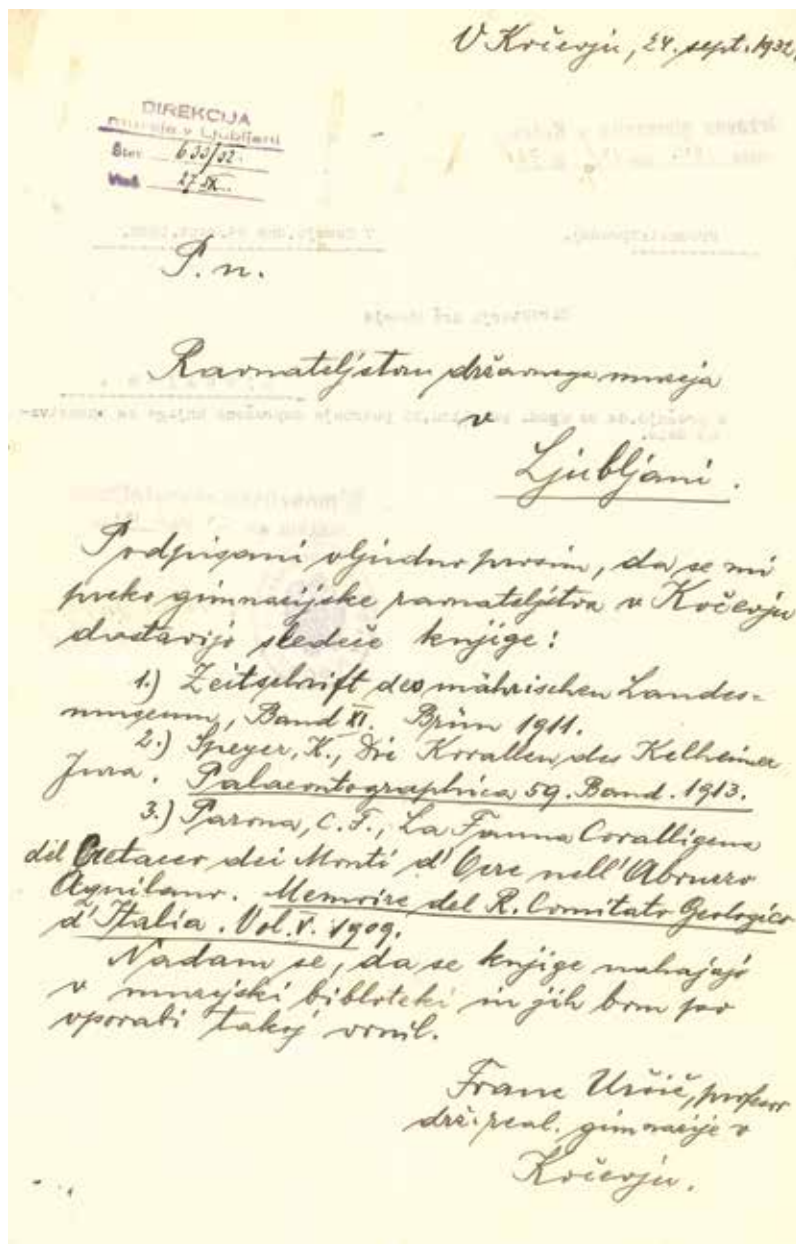 V Kočevju, 24. sept. 1932.
DIREKCIJA
muzeja v Ljubljani
Štev. 633/32.
27 IX.
P. n.
Ravnateljstvu državnega muzeja
v
Ljubljani.
Podpisani vljudno prosim, da se mi
preko gimnazijske ravnateljstva v Kočevju
dostavijo sledeče knjige:
1.) Zeitschrift des mährischen Landes=
museum, Band XI. Brünn 1911.
2.) Speyer, K., Die Korallen des Kelheimer
Jura. Palaeontographica 59. Band. 1913.
3.) Parona, C. F., La Fauna Coralligena
del Cretaceo dei Monti d'Ocre nell'Abruzzo
Aquilano. Memorie del R. Comitato Geologico
d'Italia. Vol. V. 1909.
Nadam se, da se knjige nahajajo
v muzejski biblioteki in jih bom po
uporabi takoj vrnil.
Franc Uršič, profesor
drž. real. gimnazije v
Kočevju.